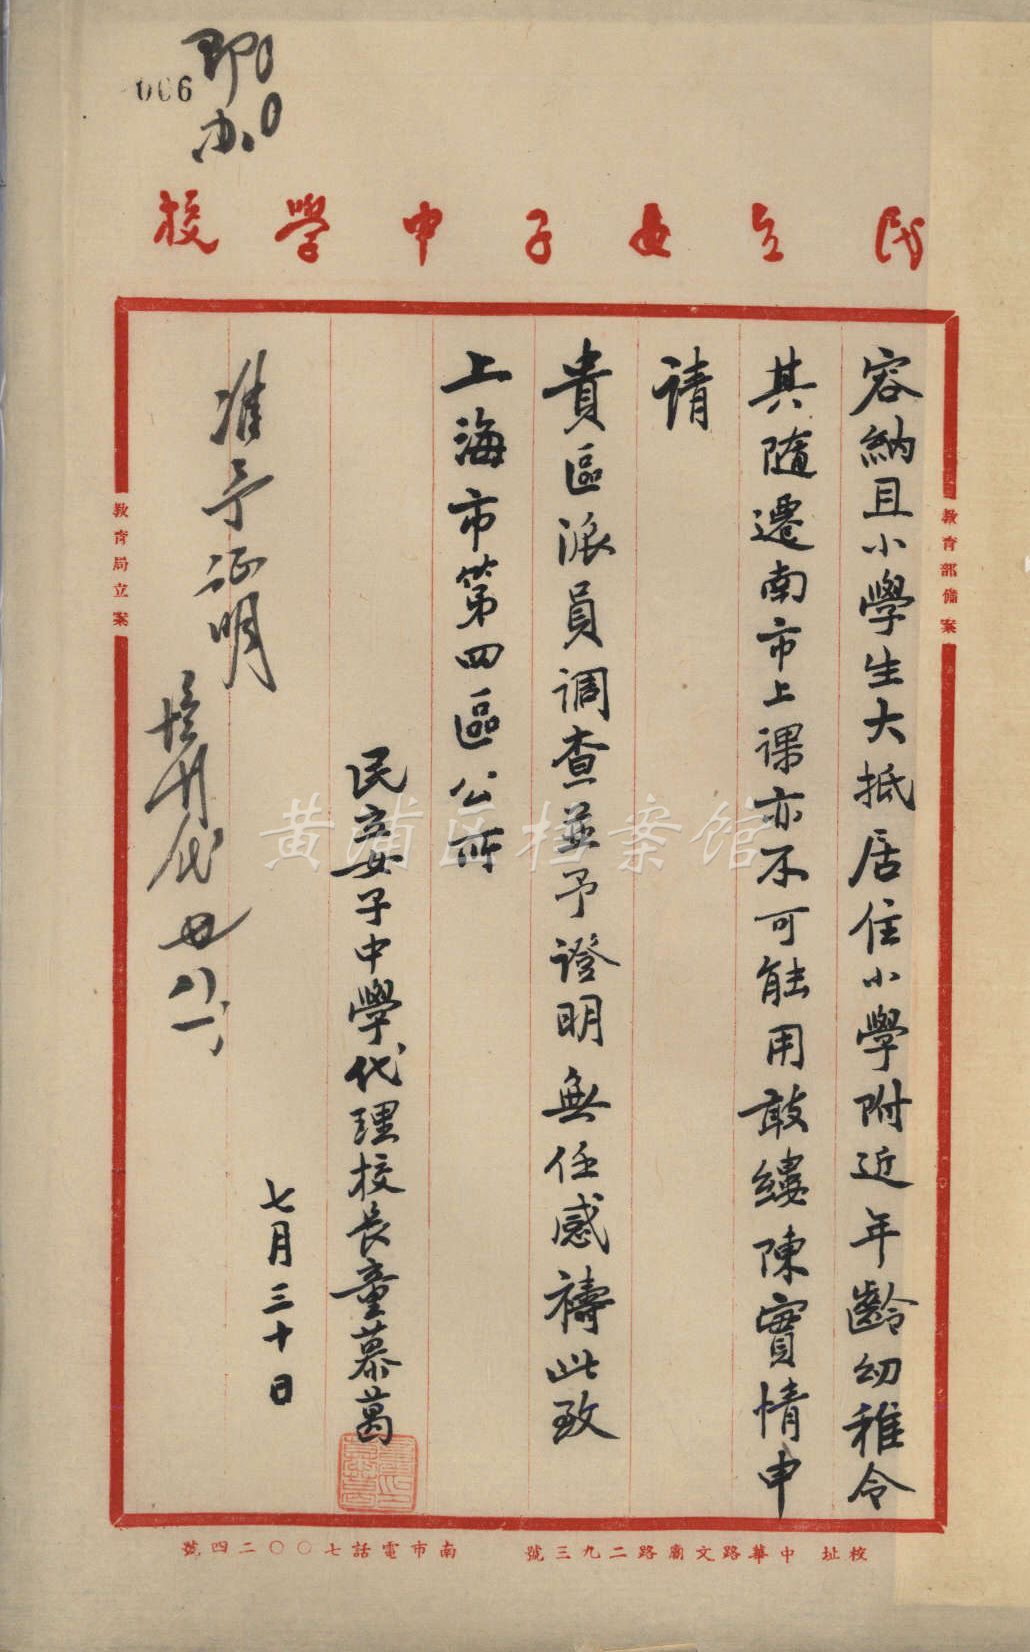 即办
006
民立女子中學校
容納且小學生大抵居住小學附近年齡幼稚令
其隨遷南市上課亦不可能用敢縷陳實情申
请
貴區派員調查並予證明無任感禱此致
上海市第四區公所
民立女子中學代理校長童慕葛
七月三十日
准予证明
教育部備案
教育局立案
校址 中華路文廟路二九三號
南市電話七〇〇二四號
黄浦区档案馆